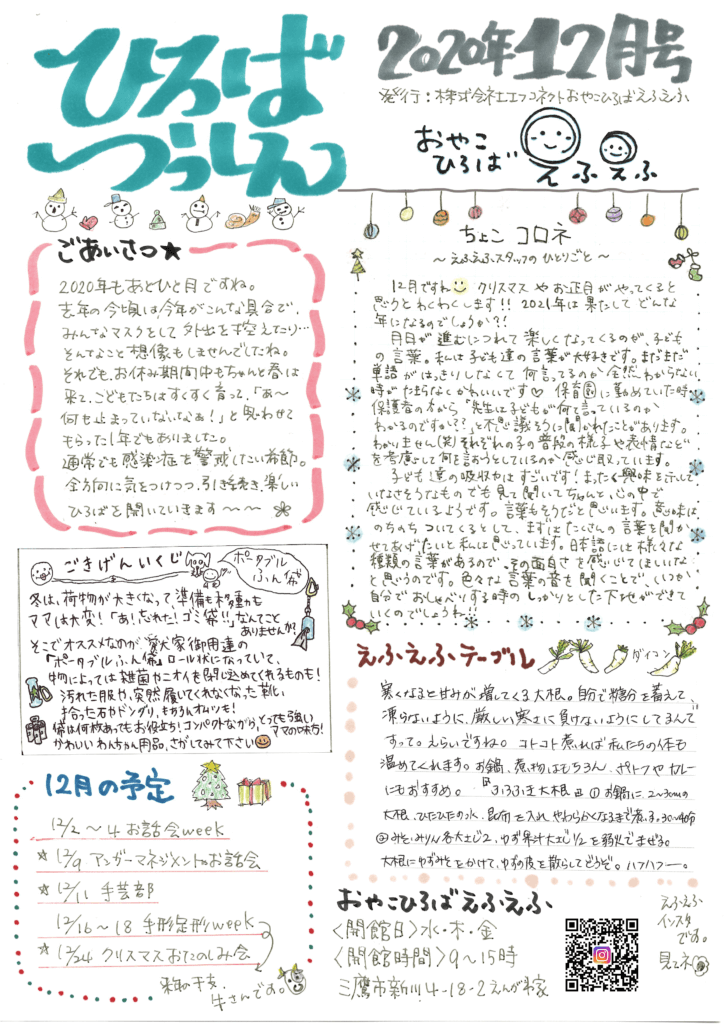 ひろば
つうしん
2020年12月号
発行:株式会社エフコネクトおやこひろばえふえふ
おやこ
ひろば
えふえふ
ごあいさつ★
2020年もあとひと月ですね。
去年の今頃は今年がこんな具合で、
みんなマスクをして外出を控えたり…
そんなこと想像もしませんでしたね。
それでも、お休み期間中もちゃんと春は
来て、こどもたちはすくすく育って、「あ〜
何も止まっていないなぁ!」と思わせて
もらった1年でもありました。
通常でも感染症を警戒したい季節。
全方向に気をつけつつ、引き続き、楽しい
ひろばを開いていきます〜〜
ちょこ コロネ
〜えふえふスタッフのひとりごと〜
12月ですね クリスマスやお正月がやってくると
思うとわくわくします!! 2021年は果たしてどんな
年になるのでしょうか?!
月日が進むにつれて楽しくなってくるのが、子ども
の言葉。私は子ども達の言葉が大好きです。まだまだ
単語がはっきりしなくて何言ってるのか全然わからない
時がたまらなくかわいいです♡ 保育園に勤めていた時、
保護者の方から「先生は子どもが何て言っているのか
わかるのですか??」と不思議そうに聞かれたことがあります。
わかりません(笑)それぞれの子の普段の様子や表情などを
を考慮して何を言おうとしているのか感じ取っています。
子ども達の吸収力はすごいです!まったく興味を示して
いなさそうなものでも見て聞いてちゃんと、心の中で
感じているようです。言葉もそうだと思います。意味は
のちのちついてくるとして、まずはたくさんの言葉を聞か
せてあげたいと私は思っています。日本語には様々な
種類の言葉があるので、その面白さを感じてほしいな
と思うのです。色々な言葉の音を聞くことで、いつか
自分でおしゃべりする時のしっかりとした下地ができて
いくのでしょうね!!
ごきげんいくじ
ポータブル
ふん袋
冬は、荷物が大きくなって準備も移動も
ママは大変!「あ!忘れた!ゴミ袋!!」なんてこと
ありませんか?
そこでオススメなのが、愛犬家御用達の
「ポータブルふん袋」ロール状になっていて、
物によっては雑菌やニオイを閉じ込めてくれるものも!
汚れた服や、突然履いてくれなくなった靴、
拾った石やドングリ、もちろんオムツも!
袋は何枚あってもお役立ち!コンパクトながら、とっても強い
ママの味方!
かわいいわんちゃん用品、さがしてみて下さい
えふえふテーブル
ダイコン
寒くなると甘みが増してくる大根。自分で糖分を蓄えて
凍らないように、厳しい寒さに負けないようにしてるんで
すって。えらいですね。コトコト煮れば私たちの体も
温めてくれます。お鍋、煮物はもちろん、ポトフやカレー
にもおすすめ。『ふろふき大根』①お鍋に、2〜3cmの
大根、ひたひたの水、昆布を入れ、やわらかくなるまで煮る。30〜40分
②みそ・みりん各大さじ2、ゆず果汁大さじ1/2を弱火でまぜる。
大根にゆずみそをかけて、ゆずの皮を散らしてどうぞ。ハフハフー。
12月の予定
12/2〜4 お話会week
★12/9 アンガーマネジメントのお話会
★12/11 手芸部
12/16〜18 手形足形week
★12/24 クリスマスおたのしみ会
来年の干支、
牛さんです。
おやこひろばえふえふ
〈開館日〉水・木・金
〈開館時間〉9〜15時
三鷹市新川4-18-2えんが家
えふえふ
インスタ
です。
見てネ